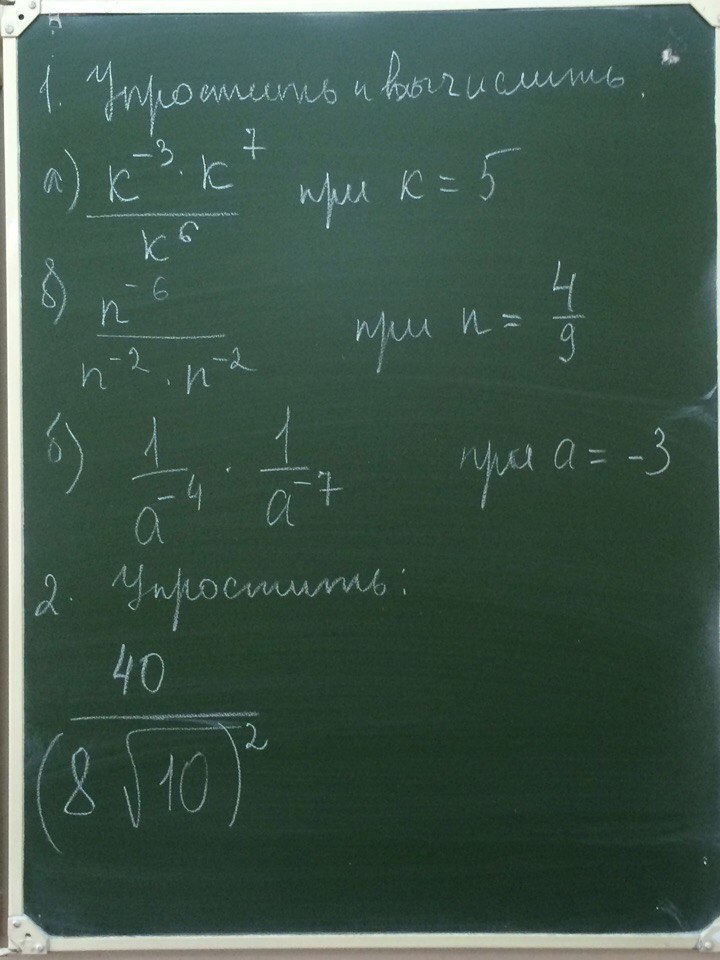 1. Упростить и вычислить.
а) (k^-3 · k^7) / k^6 при k = 5
б) n^-6 / (n^-2 · n^-2) при n = 4/9
б) 1/a^-4 · 1/a^-7 при a = -3
2. Упростить:
40 / (8√10)^2